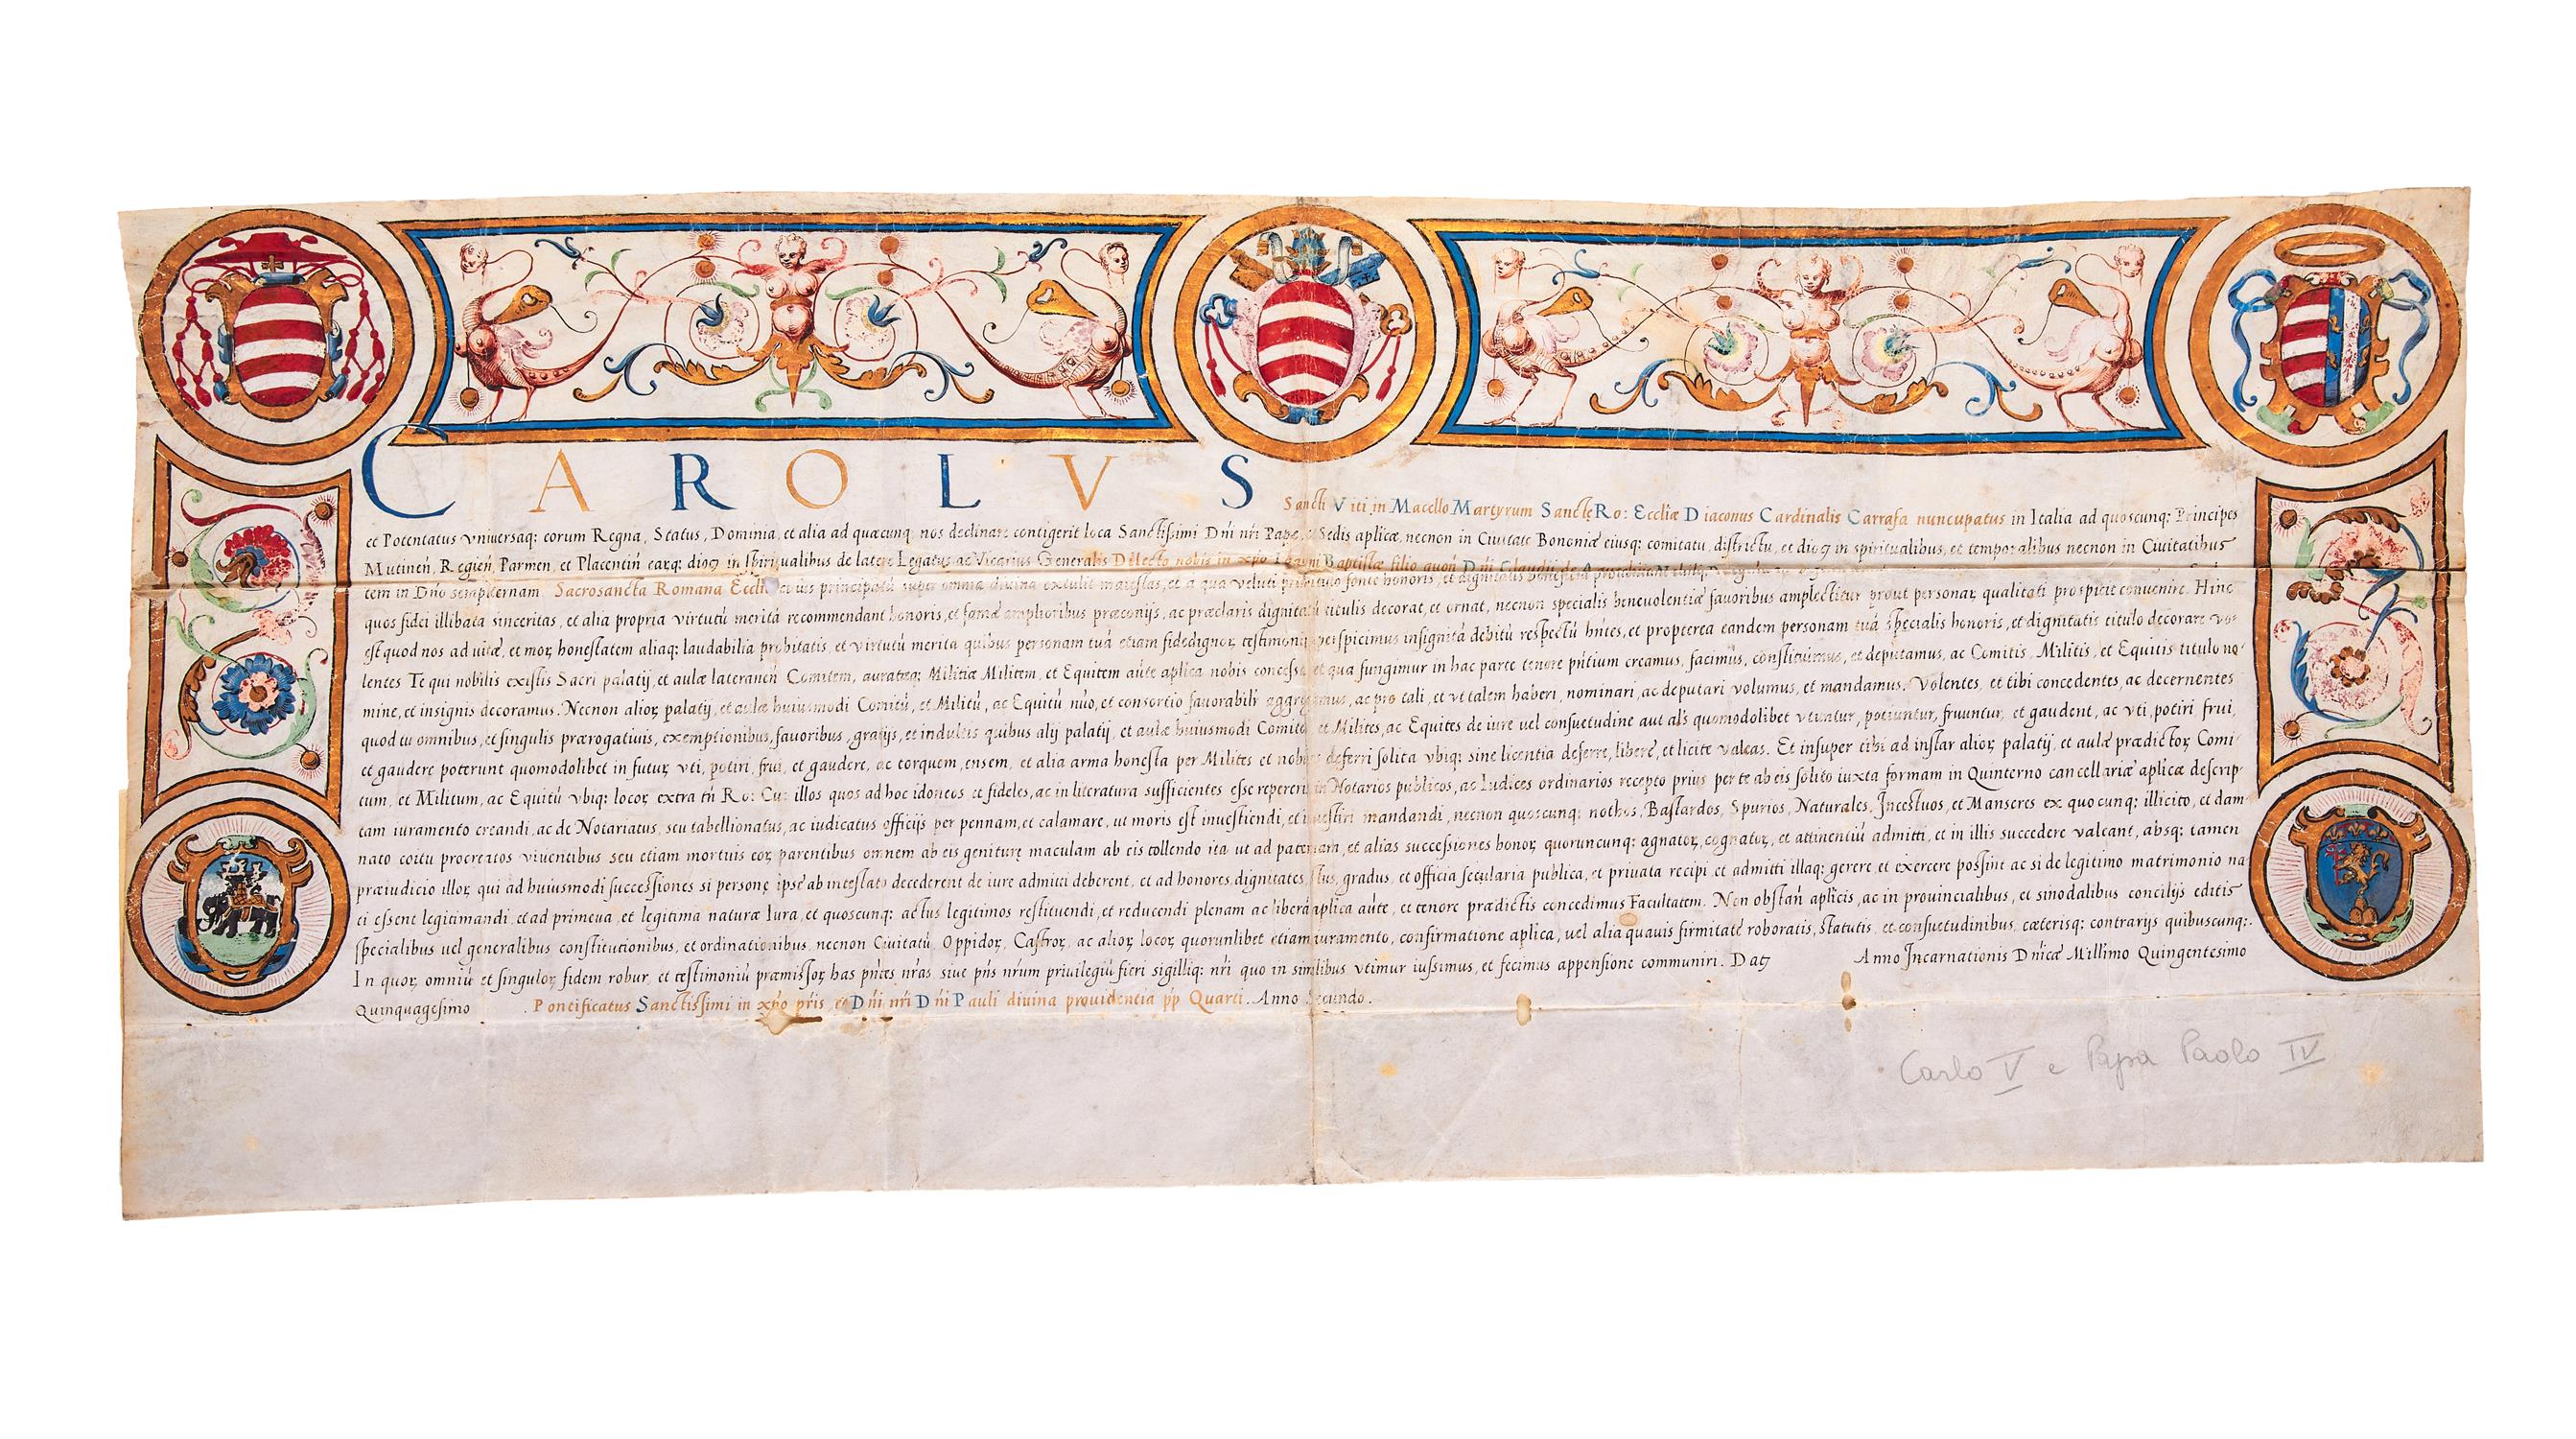 CAROLVS Sancti Viti in Macello Martyrum Sanctę Ro: Eccliæ Diaconus Cardinalis Carrafa nuncupatus in Italia ad quoscunq: Principes
et Potentatus vniuersaq: eorum Regna, Status, Dominia, et alia ad quæcunq nos declinare contigerit loca Sanctissimi Dni nri Papę, Sedis aplicæ, necnon in Ciuitate Bononiæ eiusq: comitatu, districtu, et dioꝫ in spiritualibus, et temporalibus necnon in Ciuitatibus
Mutineń, Regień, Parmen, et Placentiń earq: dioꝫ in spiritualibus de latere Legatus ac Vicarius Generalis Dilecto nobis in xpo Ioanni Baptistæ filio quon Dni Claudii de
tem in Dno sempiternam. Sacrosancta Romana Eccli cuius principatū super omnia diuina extulit maiestas, et a qua veluti fonte honoris, et dignitatis
quos fidei illibata sinceritas, et alia propria virtutū merita recommendant honoris, et famæ amplioribus præconijs, ac præclaris dignitatū titulis decorat, et ornat, necnon specialis beneuolentiæ fauoribus amplectitur prout personaꝝ qualitati prospicit conuenire. Hinc
est quod nos ad uitæ, et moꝝ honestatem aliaq: laudabilia probitatis, et virtutū merita quibus personam tuā etiam fidedignoꝝ testimonio perspicimus insignitā debitū respectū hntes, et propterea eandem personam tuā specialis honoris, et dignitatis titulo decorare vo-
lentes Te qui nobilis existis Sacri palatij, et aulæ lateraneń Comitem, aurateq: Militiæ Militem, et Equitem aūte aplica nobis concessa et qua fungimur in hac parte tenore pn̄tium creamus, facimus, constituimus, et deputamus, ac Comitis, Militis, et Equitis titulo no-
mine, et insignis decoramus. Necnon alioꝝ palatij, et aulæ huiusmodi Comitū, et Militū, ac Equitū nūo, et consortio fauorabilr aggregamus, ac pro tali, et vt talem haberi, nominari, ac deputari volumus, et mandamus. Volentes, et tibi concedentes, ac decernentes
quod tu omnibus, et singulis prærogatiuis, exemptionibus, fauoribus, gratijs, et indultis quibus alij palatij, et aulæ huiusmodi Comites et Milites, ac Equites de iure uel consuetudine aut als quomodolibet vtuntur, potiuntur, fruuntur, et gaudent, ac vti, potiri frui,
et gaudere poterunt quomodolibet in futuꝝ vti, potiri, frui, et gaudere, ac torquem, ensem, et alia arma honesta per Milites et nobiles deferri solita vbiq: sine licentia deferre, libere, et licite valeas. Et insuper tibi ad instar alioꝝ palatij, et aulæ prædictoꝝ Comi-
tum, et Militum, ac Equitū vbiq: locoꝝ extra tn̄ Ro: Cu: illos quos ad hoc idoneos et fideles, ac in literatura sufficientes esse repereris in Notarios publicos, ac Iudices ordinarios recepto prius per te ab eis solito iuxta formam in Quinterno cancellariæ aplicæ descrip-
tam iuramento creandi, ac de Notariatus, seu tabellionatus, ac iudicatus officijs per pennam, et calamare, ut moris est inuestiendi, et inuestiri mandandi, necnon quoscunq: nothos, Bastardos, Spurios, Naturales, Incestuos, et Manseres ex quocunq: illicito, et dam-
nato coitu procreatos viuentibus seu etiam mortuis eoꝝ parentibus omnem ab eis geniturę maculam ab eis tollendo ita ut ad paternam, et alias successiones honoꝝ quoruncunq: agnatoꝝ, cognatoꝝ, et attinentiū admitti, et in illis succedere valeant, absq: tamen
præiudicio illoꝝ qui ad huiusmodi successiones si personę ipsę ab intestato decederent de iure admitti deberent, et ad honores, dignitates, status, gradus, et officia secularia publica, et priuata recipi, et admitti illaq: gerere, et exercere possint ac si de legitimo matrimonio na-
ti essent legitimandi, et ad primeua, et legitima naturæ Iura, et quoscunq: actus legitimos restituendi, et reducendi plenam ac liberā aplica aūte, et tenore prædictis concedimus Facultatem. Non obstań aplicis, ac in prouincialibus, et sinodalibus concilijs editis
specialibus uel generalibus constitutionibus, et ordinationibus, necnon Ciuitatū, Oppidoꝝ, Castroꝝ, ac alioꝝ locoꝝ quorunlibet etiam iuramento, confirmatione aplica, uel alia quauis firmitate roboratis, statutis, et consuetudinibus, cæterisq: contrarijs quibuscunq:.
In quoꝝ omniū et singuloꝝ fidem robur, et testimoniū præmissoꝝ has pn̄tes nr̄as, siue pn̄s nrum priuilegiū fieri sigilliq: nri quo in similibus vtimur iussimus, et fecimus appensione communiri. Datꝫ Anno Incarnationis Dnicæ Millimo Quingentesimo
Quinquagesimo Pontificatus Sanctissimi in xpo pr̄is et Dni nri Dni Pauli diuina prouidentia pp Quarti. Anno Secundo.
Carlo V e Papa Paolo IV